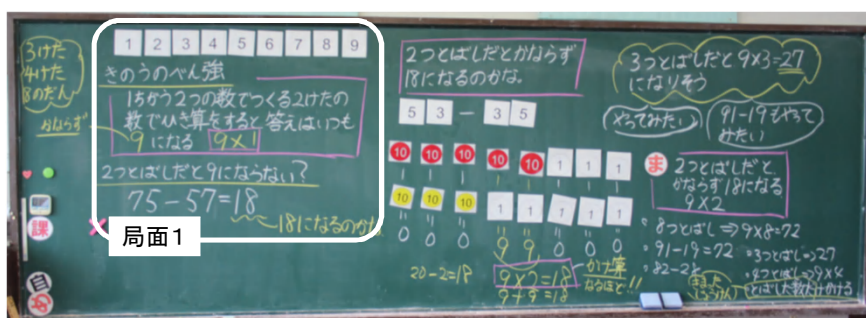 3けた
4けた
8のだん
かならず
1 2 3 4 5 6 7 8 9
きのうのべん強
1ちがう2つの数でつくる2けたの
数でひき算をすると答えはいつも
9になる 9×1
2つとばしだと9にならない?
75-57=18
18になるのかな
局面1
課
自
2つとばしだとかならず
18になるのかな。
5 3 - 3 5
10 10 10 10 10 1 1 1
10 10 10 1 1 1 1 1
0 0 0 9 9 0 0 0
20-2=18
9×2=18
9+9=18
かけ算
なるほど!!
3つとばしだと9×3=27
になりそう
やってみたい
91-19もやって
みたい
ま
2つとばしだと、
かならず18になる
9×2
8つとばし⇒9×8=72
91-19=72
82-28
3つとばし⇒27
4つとばし⇒9×4
とばした数だけかける